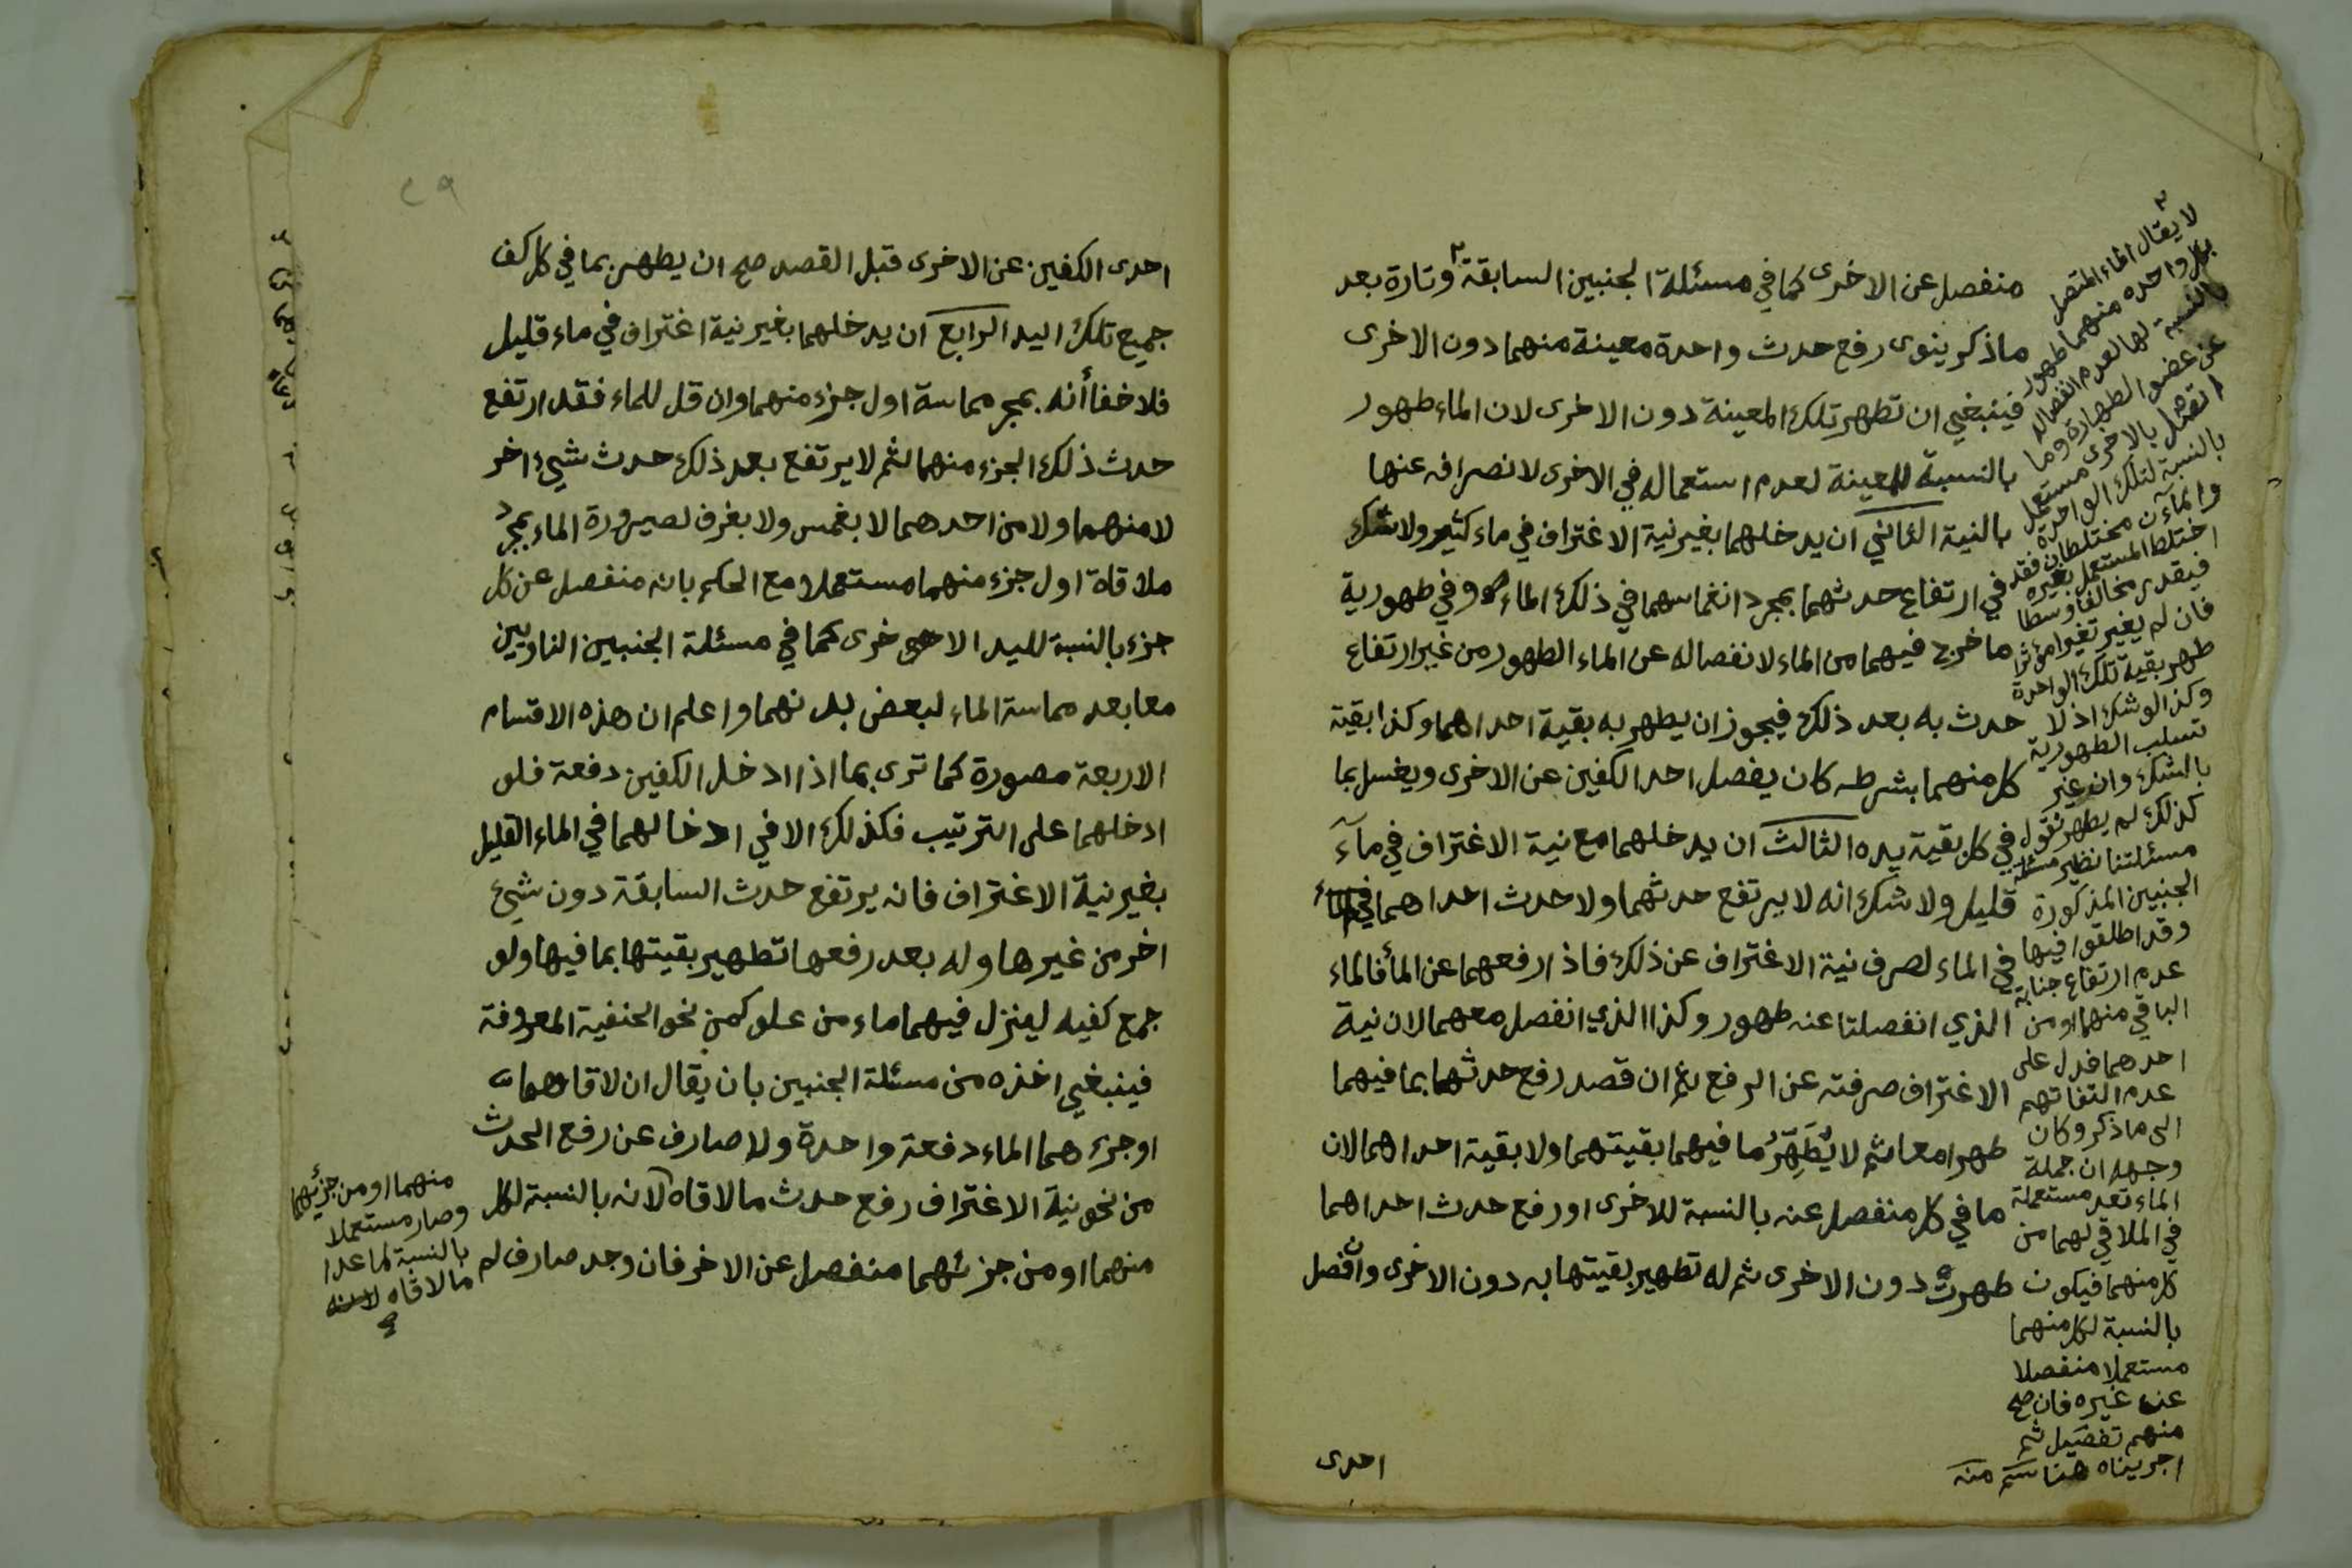 منفصل عن الاخرى كما في مسئلة الجنبين السابقة٢ وتارة بعد
ما ذكر ينوى رفع حدث واحدة معينة منهما دون الاخرى
فينبغي ان تطهر تلك المعينة دون الاخرى لان الماء طهور
بالنسبة للمعينة لعدم استعماله في الاخرى لانصرافه عنها
بالنية الثاني ان يدخلهما بغير نية الاغتراف في ماء كثير ولا شك
في ارتفاع حدثهما بمجرد انغماسهما في ذلك الماء وفي طهورية
ما خرج فيهما من الماء لانفصاله عن الماء الطهور من غير ارتفاع
حدث به بعد ذلك فيجوز ان يطهر به بقية احداهما وكذا بقية
كل منهما بشرطه كان يفصل احد الكفين عن الاخرى ويغسل بما
في كل بقية يده الثالث ان يدخلهما مع نية الاغتراف في مآء
قليل ولا شك انه لا يرتفع حدثهما ولا حدث احداهما
في الماء لصرف نية الاغتراف عن ذلك فاذا رفعهما عن المأ فالماء
الذي انفصلتا عنه طهور وكذا الذي انفصل معهما لان نية
الاغتراف صرفته عن الرفع نعم ان قصد رفع حدثهما بما فيهما
طهرا معا ثم لا يُطَهِّرُ ما فيهما بقيتهما ولا بقية احداهما لان
ما في كل منفصل عنه بالنسبة للاخرى او رفع حدث احداهما
طهرت دون الاخرى ثم له تطهير بقيتها به دون الاخرى وان فصل
احدى
٢
لا يقال الماء المتصل
بكل واحده منهما طهور
بالنسبة لها لعدم انفصاله
عن عضو الطهارة وما
اتصل بالاخرى مستعمل
بالنسبة لتلك الواحدة
والمآءن مختلطان فقد
اختلط المستعمل بغيره
فيقدر مخالفا وسطا
فان لم يغير تغيرا مؤثرا
طهر بقية تلك الواحدة
وكذا لو شك اذ لا
تسلب الطهورية
بالشك وان غير
كذلك لم يطهر نقول
مسئلتنا نظير مسئلة
الجنبين المذكورة
وقد اطلقوا فيها
عدم ارتفاع جنابة
الباقي منهما او من
احدهما فدل على
عدم التفاتهم
الى ما ذكر وكان
وجهه ان جملة
الماء تعد مستعملة
في الملاقي لهما من
كل منهما فيكون
بالنسبة لكل منهما
مستعملا منفصلا
عن غيره فان صح
منهم تفصيل ثم
اجريناه هنا منه
احدى الكفين عن الاخرى قبل القصد صح ان يطهر بما في كل كف
جميع تلك اليد الرابع ان يدخلهما بغير نية اغتراف في ماء قليل
فلا خفا أنه بمجرد مماسة اول جزء منهما وان قل للماء فقد ارتفع
حدث ذلك الجزء منهما ثم لا يرتفع بعد ذلك حدث شيء اخر
لا منهما ولا من احدهما لا بغمس ولا بغرف لصيرورة الماء بمجرد
ملاقاة اول جزء منهما مستعملا مع الحكم بانه منفصل عن كل
جزء بالنسبة لليد الاخرى كما في مسئلة الجنبين الناويين
معا بعد مماسة الماء لبعض بدنهما واعلم ان هذه الاقسام
الاربعة مصورة كما ترى بما اذا ادخل الكفين دفعة فلو
ادخلهما على الترتيب فكذلك الا في ادخالهما في الماء القليل
بغير نية الاغتراف فانه يرتفع حدث السابقة دون شيئ
اخر من غيرها وله بعد رفعها تطهير بقيتها بما فيها ولو
جمع كفيه لينزل فيهما ماء من علو كمن نحو الحنفية المعروفة
فينبغي اخذه من مسئلة الجنبين بان يقال ان لاقاهما
او جزءهما الماء دفعة واحدة ولا صارف عن رفع الحدث
من نحو نية الاغتراف رفع حدث ما لاقاه لانه بالنسبة لكل
منهما او من جزئهما منفصل عن الاخر فان وجد صارف لم
منهما او من جزئهما
وصار مستعملا
بالنسبة لما عدا
ما لاقاه